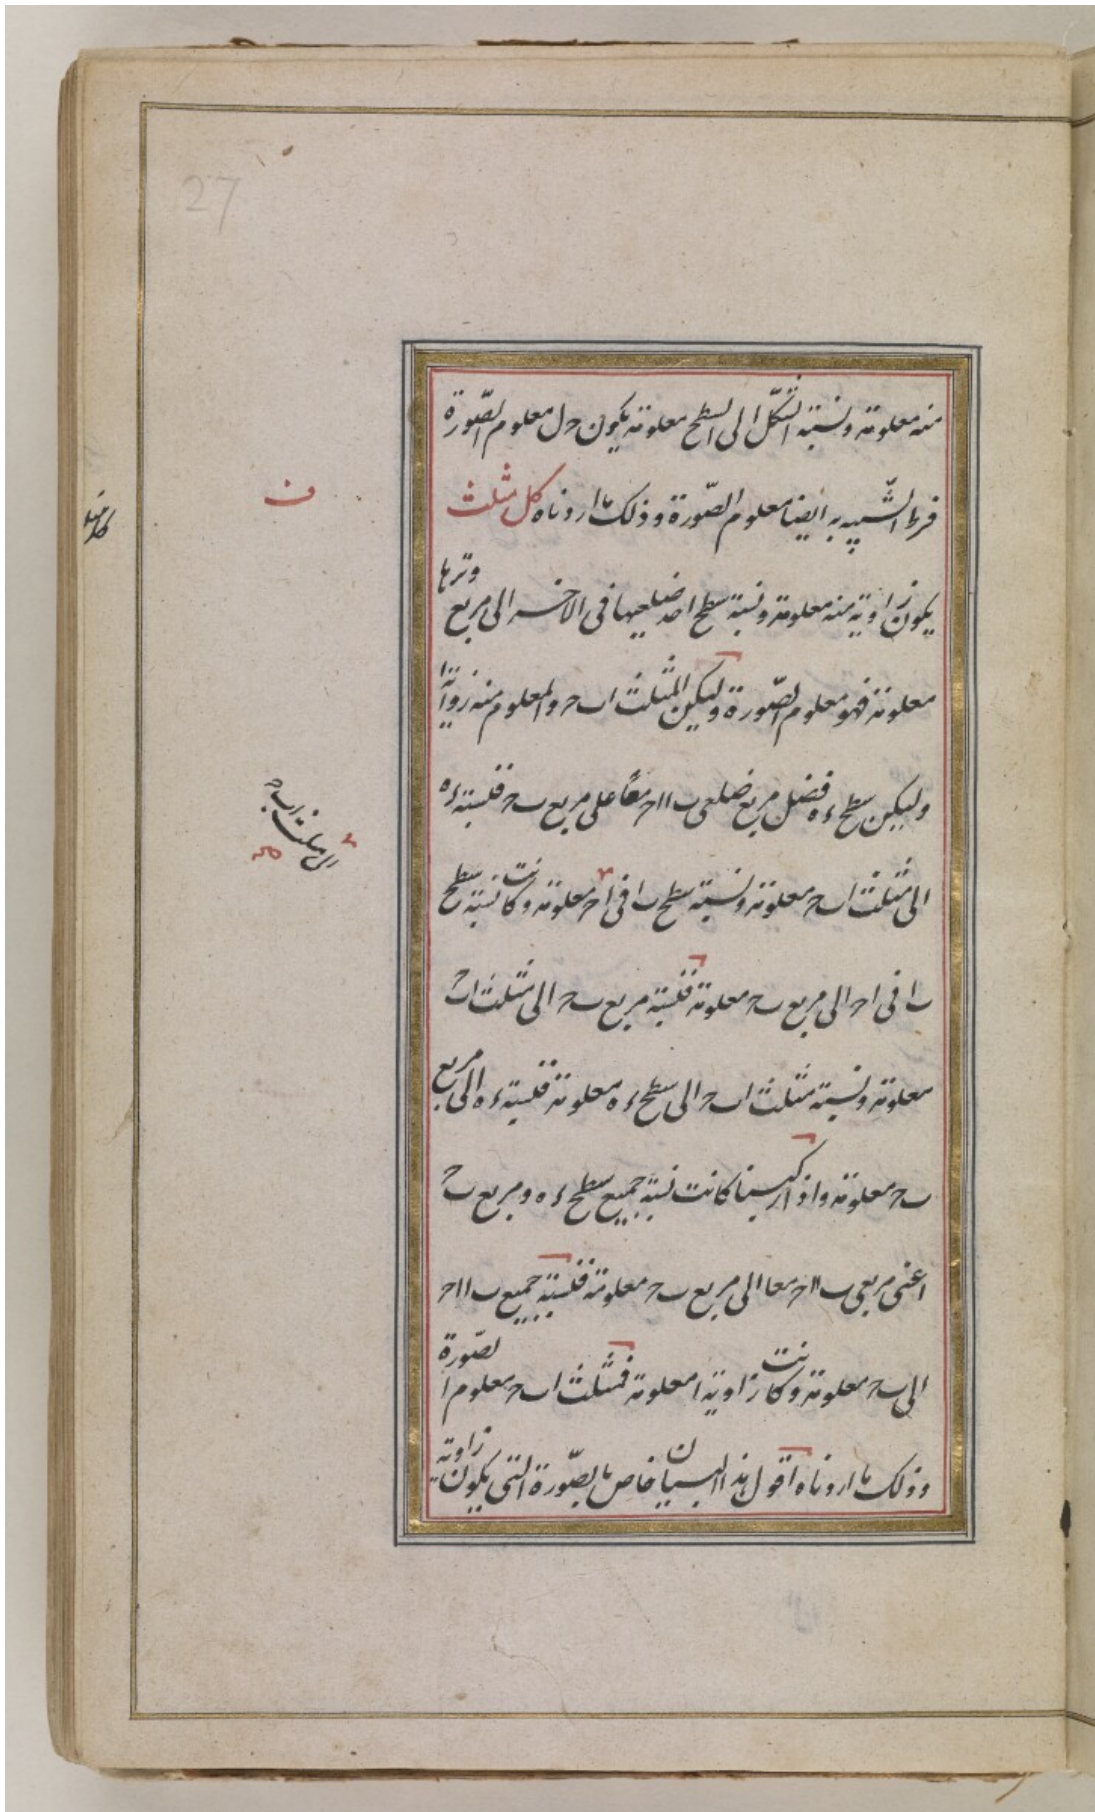 27
منه معلومة ونسبة الشكل الى السطح معلومة يكون حل معلوم الصّورة
فرط الشّبيه به ايضا معلوم الصّورة وذلك ما اردناه كل مثلث
ن
يكون زاوية منه معلومة ونسبة سطح احد ضلعيها فى الاخر الى مربع وترها
معلومة فهو معلوم الصّورة وليكن المثلث ابح والمعلوم منه زاوية ا
وليكن سطح ءه فضل مربع ضلعى ب ا اح معا على مربع بح فنسبة ءه
الى مثلث ابح معلومة ونسبة سطح با فى اح معلومة وكانت نسبة سطح
الى مثلث ابح
صح
با فى اح الى مربع بح معلومة فنسبة مربع بح الى مثلث ابح
معلومة ونسبة مثلث ابح الى سطح ءه معلومة فنسبة ءه الى مربع
بح معلومة واذا ركبنا كانت نسبة جميع سطح ءه ومربع بح
اعنى مربعى ب ا اح معا الى مربع بح معلومة فنسبة جميع ب ا اح
الى بح معلومة وكانت زاوية ا معلومة فمثلث ابح معلوم الصّورة
وذلك ما اردناه اقول هذا البيان خاص بالصّورة التى يكون زاوية